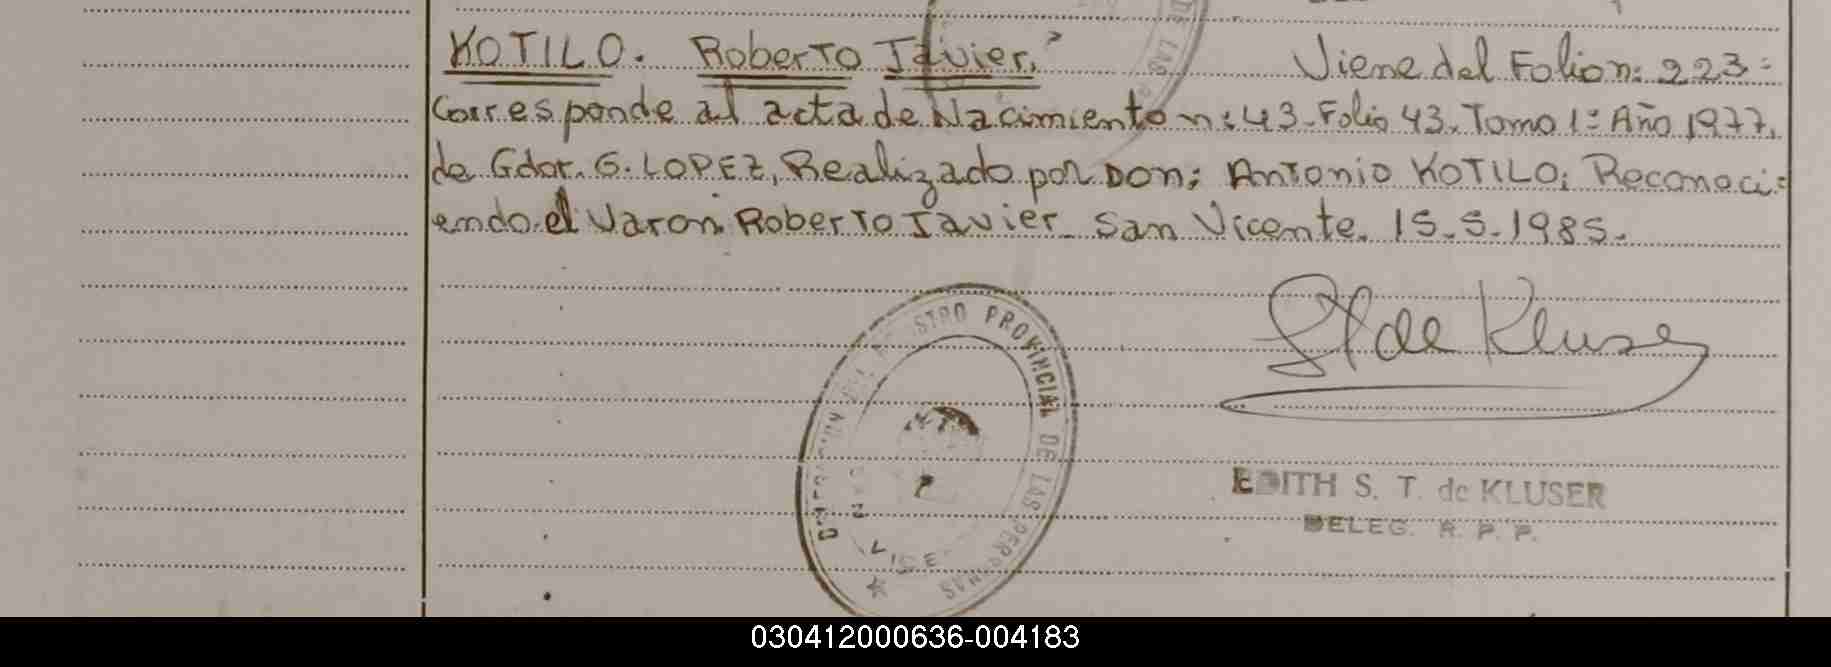 KOTILO. Roberto Javier. Viene del Folio n: 223=
Corresponde al acta de Nacimiento n: 43. Folio 43. Tomo 1º Año 1977.
de Gdor. G. LOPEZ, Realizado por Don; Antonio KOTILO; Reconoci=
endo el Varon Roberto Javier San Vicente. 15.5.1985.
REGISTRO PROVINCIAL DE LAS PERSONAS
SAN VICE
DE LAS
St de Kluser
EDITH S. T. de KLUSER
DELEG. R. P. P.
030412000636-004183